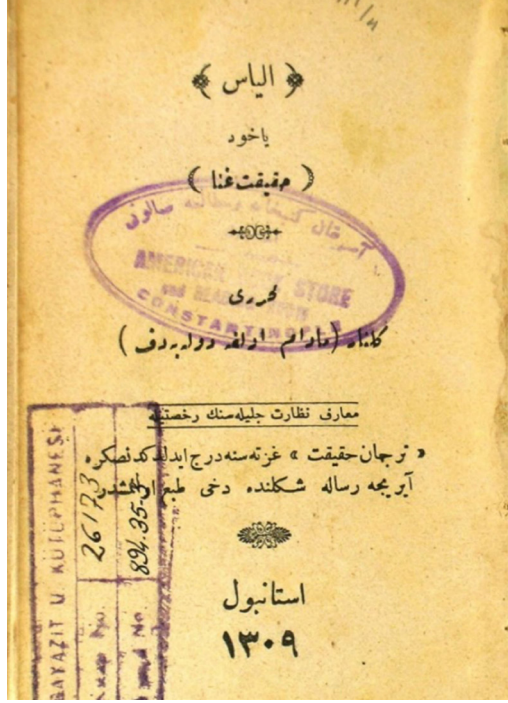 الياس
ياخود
( حقيقت غنا )
آمريقان كتبخانه و مطالعه صالونى
AMERICAN BOOK STORE
and READING ROOM
CONSTANTINOPLE
محررى
كلنار (مادام اولغه دوله بدف )
معارف نظارت جليله سنك رخصتيله
« ترجمان حقيقت » غزته سنه درج ايدلدكدنصكره
آيريجه رساله شكلنده دخى طبع اولنمشدر
استانبول
١٣٠٩
BAYAZIT U. KÜTÜPHANESİ
26173
894.35-3
No.
No.